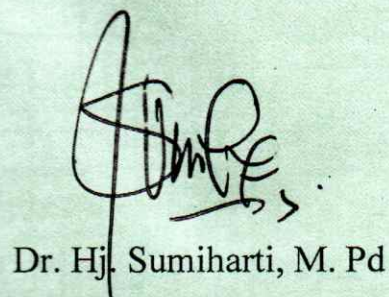 Dr. Hj. Sumiharti, M. Pd